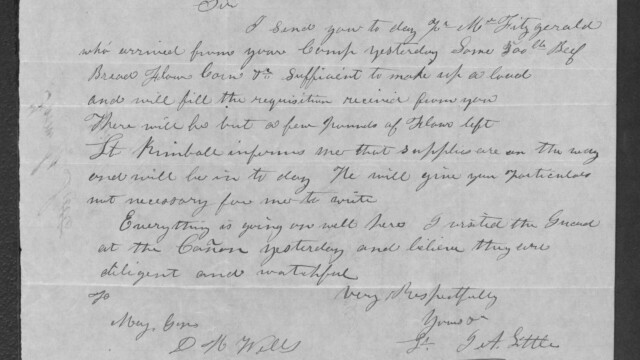 Sir
I send you to day pr Mr Fitzgerald
who arrived from your Camp yesterday Some 300 lb Beef
Bread Flour Corn &c sufficient to make up a load
and will fill the requisition receivd from you
There will be but a few pounds of Flour left
Lt Kimball informs me that supplies are on the way
and will be in to day He will give you Particulars
not necessary for me to write
Everything is going on well here I visited the Guard
at the Cañon yesterday and believe they are
diligent and watchful
To Very Respectfully
Maj. Genr Yours &c
D H Wells Lt. A. Little